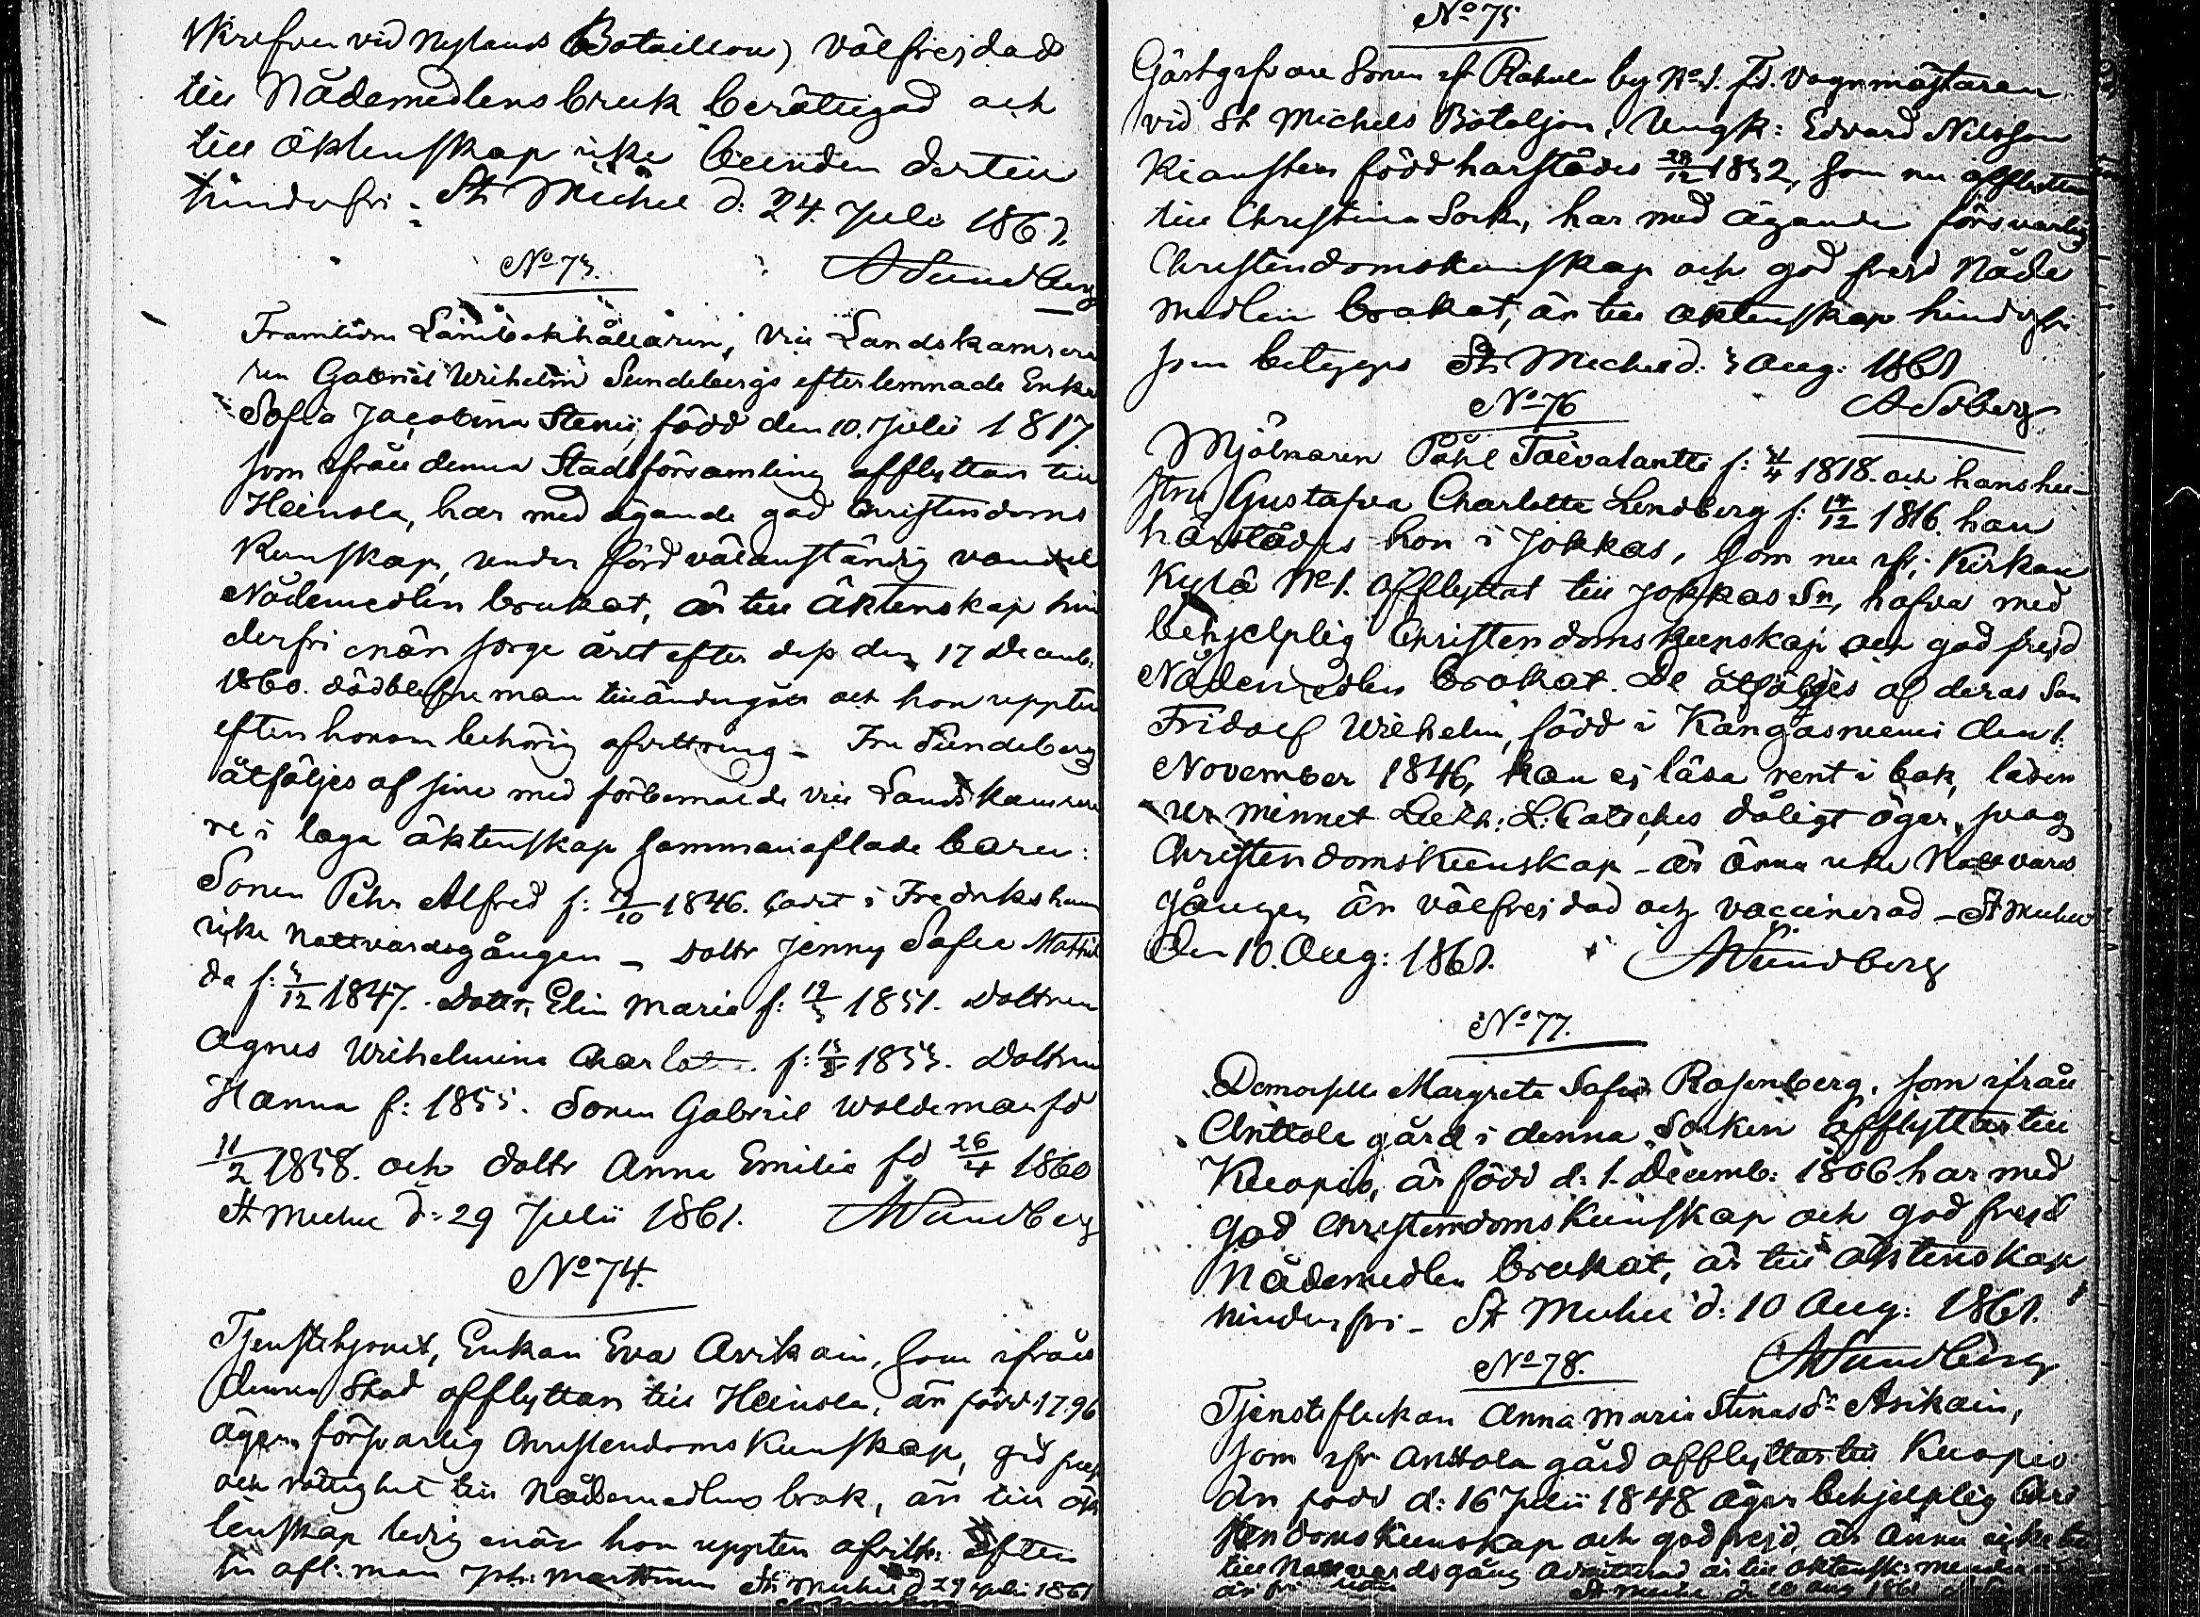 skrefven vid Nylands Bataillon) välfrejdad
till Nådemedlens bruk berättigad och
till äktenskap icke bunden dertill
hinderfri. St Michel d. 24. Juli 1861.
ASundberg
No 73.
Framlidne Länsbokhållaren, Vice Landskamrera
ren Gabriel Wilhelm Sundebergs efterlemnade Enka
Sofia Jacobina Stenij, född den 10. Julii 1817.
som ifrån denna Stadsförsamling afflyttar till
Heinola, har med ägande god Christendoms
Kunskap, under förd välanständig vandel
Nådemedlen brukat, är till Äktenskap hin
derfri enär sorge året efter dess den 17 Decemb:
1860. dödblefne man tilländagår och hon uppter
efter honom behörig afvittring - Fru Sundeberg
åtföljes af sine med förbemälde Vice Landskamrera
re i laga äktenskap sammanaflade barn:
Sonen Pehr Alfred f: 19/10 1846. Cadet i Fredrikshamn
icke Nattvardsgången - Dottr Jenny Sofie Mathil
da f: 5/12 1847. Dottr. Elin Maria f: 19/3 1851. Dottren
Agnes Wilhelmina Charlotta f: 1853. Dottren
Hanna f: 1855. Sonen Gabriel Woldemar fd
11/2 1858. och dottr Anna Emilia fd 26/4 1860
St Michel d: 29 Julii 1861. ASundberg
No 74.
Tjenstehjonet, Enkan Eva Avikain, som ifrån
denna Stad afflyttar till Heinola, är född 1796
äger försvarlig Christendoms Kunskap, god frejd
och rättighet till Nådemedlens bruk, är till äk
tenskap ledig enär hon uppter afvittr: efter
sin afl: man Joh: Marttinen St Michel d 29 Julii 1861
No 75
Gästgifvare Sonen ifr. Rahula by No 1. F.d. Vagnmästaren
vid St Michels Bataljon, Ungk: Edvard Nilsson
Kiansten född härstädes 28/12 1832, som nu afflyttar
till Christina Sock, har med ägande försvarlig
Christendomskunskap och god frejd Nåde
medlen brukat, är till äktenskap hindrfri
som betygas St Michel d: 3 Aug: 1861
ASdberg
No 76
Mjölnaren Påhl Taivalantti f: 4/4 1818. och hans hu-
stru Gustafva Charlotta Lindberg f: 14/12 1816. han
härstädes hon i Jokkas, som nu ifr. Kirkon
Kylä No 1. afflyttat till Jokkas Sn, hafva med
behjelplig Christendoms Kunskap och god frejd
Nådemedlen brukat. De åtföljes af deras Son
Fridolf Wilhelm, född i Kangasniemi den 1.
November 1846, kan ej läsa rent i bok, läsen
ur minnet Luth: L: Cateches dåligt äger svag
Christendomskunskap - är ännu icke Nattvards
gången är välfrejdad och vaccinerad - St Michel
den 10. Aug: 1861. ASundberg
No 77.
Demoiselle Margreta Sofia Rosenberg, som ifrån
Anttola gård i denna Socken afflyttar till
Kuopio, är född d: 1. Decemb: 1806. har med
god Christendoms Kunskap och god frejd
Nådemedlen brukat, är till äktenskap
hinderfri - St Michel d: 10 Aug: 1861.
ASundberg
No 78.
Tjensteflickan Anna Maria Stinasdr Asikain,
som ifr Anttola gård afflyttar till Kuopio
är född d: 16 Julii 1848 äger behjelplig Chri
stendoms Kunskap och god frejd, är ännu icke
till Nattvardsgång admitterad är till äktensk:
St Michel d 10 Aug 1861